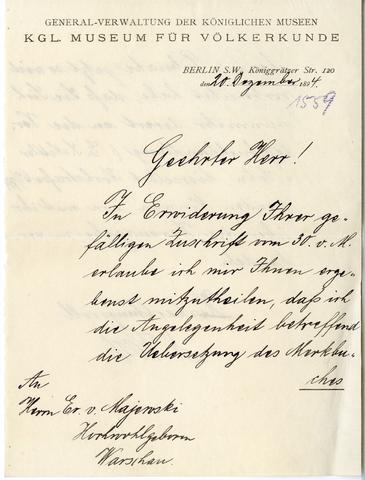 GENERAL-VERWALTUNG DER KÖNIGLICHEN MUSEEN
KGL. MUSEUM FÜR VÖLKERKUNDE
BERLIN S.W., Königgrätzer Str. 120
den 20. Dezember 1894.
1559
Geehrter Herr!
In Erwiderung Ihrer ge-
fälligen Zuschrift vom 30. v. M.
erlaube ich mir Ihnen erge-
benst mitzutheilen, daß ich
die Angelegenheit betreffend
die Uebersetzung des Merkbu-
ches
An
Herrn Er. v. Majewski
Hochwohlgeboren
Warschau.